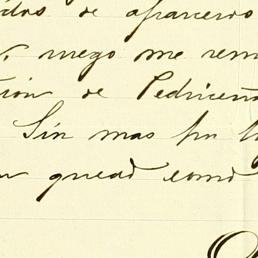 de aparceros
ruego me rem
ción de Pedriceña
Sin mas por
quead como